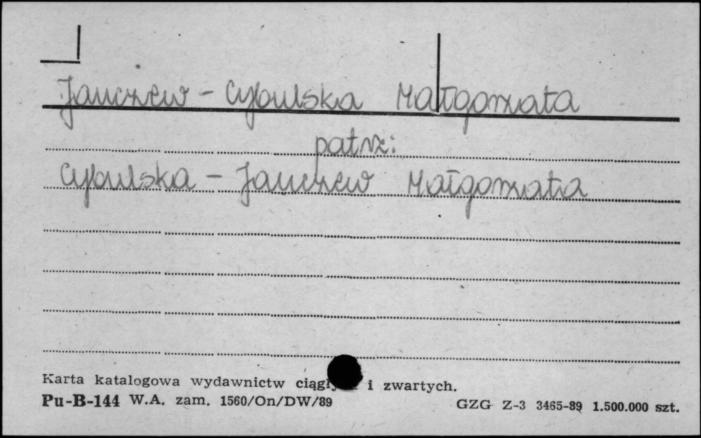 Janczew - Cybulska Małgorzata
patrz:
Cybulska - Janczew Małgorzata
Karta katalogowa wydawnictw i zwartych.
Pu-B-144 W.A. zam. 1560/On/DW/89 GZG Z-3 3465-89 1.500.000 szt.